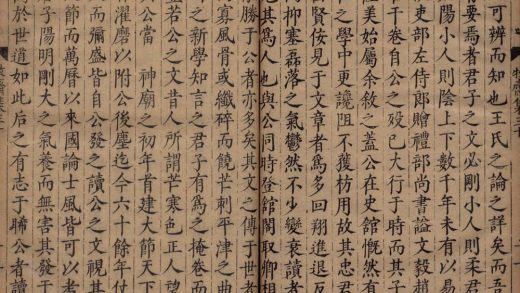 可辨而知也王氏之論之詳矣而吾
要焉者君子之文必剛小人則柔君
陽小人則陰上下數千年未有以易
部左侍郎贈禮部尚書謚文毅趙
干卷自公之歿已大行于時而其子
美始屬余敘之蓋公在史館慨然有
之學中更讒阻不獲枋用故其忠君
賢佞見于文章者爲多回翔進退反
抑塞磊落之氣鬱然不少變衰讀者
其爲人也與公同時登館閣取卿相
勝于公者亦多矣其文之傳于世者
寡風骨或纖碎而饒芒刺平津之曲
之新學知言之君子有爲之掩卷而
若公之文昔人所謂芒寒色正人望
公當 神廟之初年首建大節天下
濯磨以附公後塵迄今六十餘年仕
而彌盛皆自公發之讀公之文視其
節而萬曆以來國論士風皆可以
子陽明剛大之氣養而無害其發于
於世道如此后之有志于睎公者讀